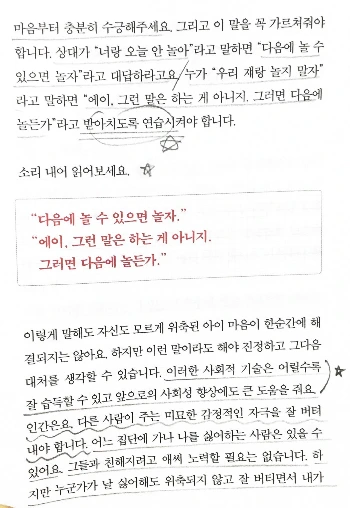 마음부터 충분히 수긍해주세요. 그리고 이 말을 꼭 가르쳐줘야
합니다. 상대가 “너랑 오늘 안 놀아”라고 말하면 “다음에 놀 수
있으면 놀자”라고 대답하라고요. 누가 “우리 쟤랑 놀지 말자”
라고 말하면 “에이, 그런 말은 하는 게 아니지. 그러면 다음에
놀든가”라고 받아치도록 연습시켜야 합니다.
소리 내어 읽어보세요.
“다음에 놀 수 있으면 놀자.”
“에이, 그런 말은 하는 게 아니지.
그러면 다음에 놀든가.”
이렇게 말해도 자신도 모르게 위축된 아이 마음이 한순간에 해
결되지는 않아요. 하지만 이런 말이라도 해야 진정하고 그다음
대처를 생각할 수 있습니다. 이러한 사회적 기술은 어릴수록
잘 습득할 수 있고 앞으로의 사회성 향상에도 큰 도움을 줘요.
인간은요, 다른 사람이 주는 미묘한 감정적인 자극을 잘 버텨
내야 합니다. 어느 집단에 가나 나를 싫어하는 사람은 있을 수
있어요. 그들과 친해지려고 애써 노력할 필요는 없습니다. 하
지만 누군가가 날 싫어해도 위축되지 않고 잘 버티면서 내가